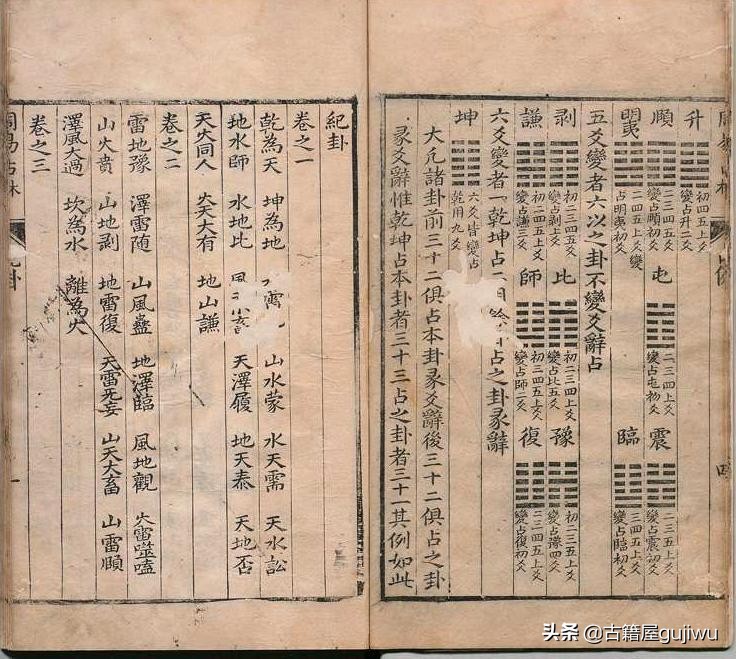 升 初四五上爻 變占升二爻
頤 二三四五爻 變占頤初爻 屯 二三四上爻 變占屯初爻 震 二三五上爻 變占震初爻
明夷 二四五上爻變 占明夷初爻 臨 三四五上爻 變占臨初爻
五爻變者六以之卦不變爻辭占
剥 初二三四五爻 變占剥上爻 比 初二三四上爻 變占比五爻 豫 初二三五上爻 變占豫四爻
謙 初二四五上爻 變占謙三爻 師 初三四五上爻 變占師二爻 復 二三四五上爻 變占復初爻
六爻變者一乾坤占二用 占之卦彖辭
坤 六爻皆變占 乾用九爻
大凡諸卦前三十二俱占本卦彖爻辭後三十二俱占之卦
彖爻辭惟乾坤占本卦者三十三占之卦者三十一其例如此
紀卦
卷之一
乾為天 坤為地 山水蒙 水天需 天水訟
地水師 水地比 天澤履 地天泰 天地否
天火同人 火天大有 地山謙
卷之二
雷地豫 澤雷随 山風蠱 地澤臨 風地觀 火雷噬嗑
山火賁 山地剥 地雷復 天雷无妄 山天大畜 山雷頤
澤風大過 坎為水 離為火
卷之三
周易占林 一
头条 @古籍屋gujiwu